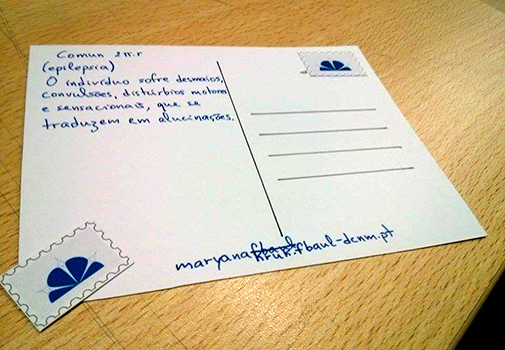 Comun 2π.r
(epilepsia)
O indivíduo sofre desmaios,
convulsões, distúrbios motores
e sensacionais, que se
traduzem em alucinações.
maryana kruk.fbaul-dcnm.pt